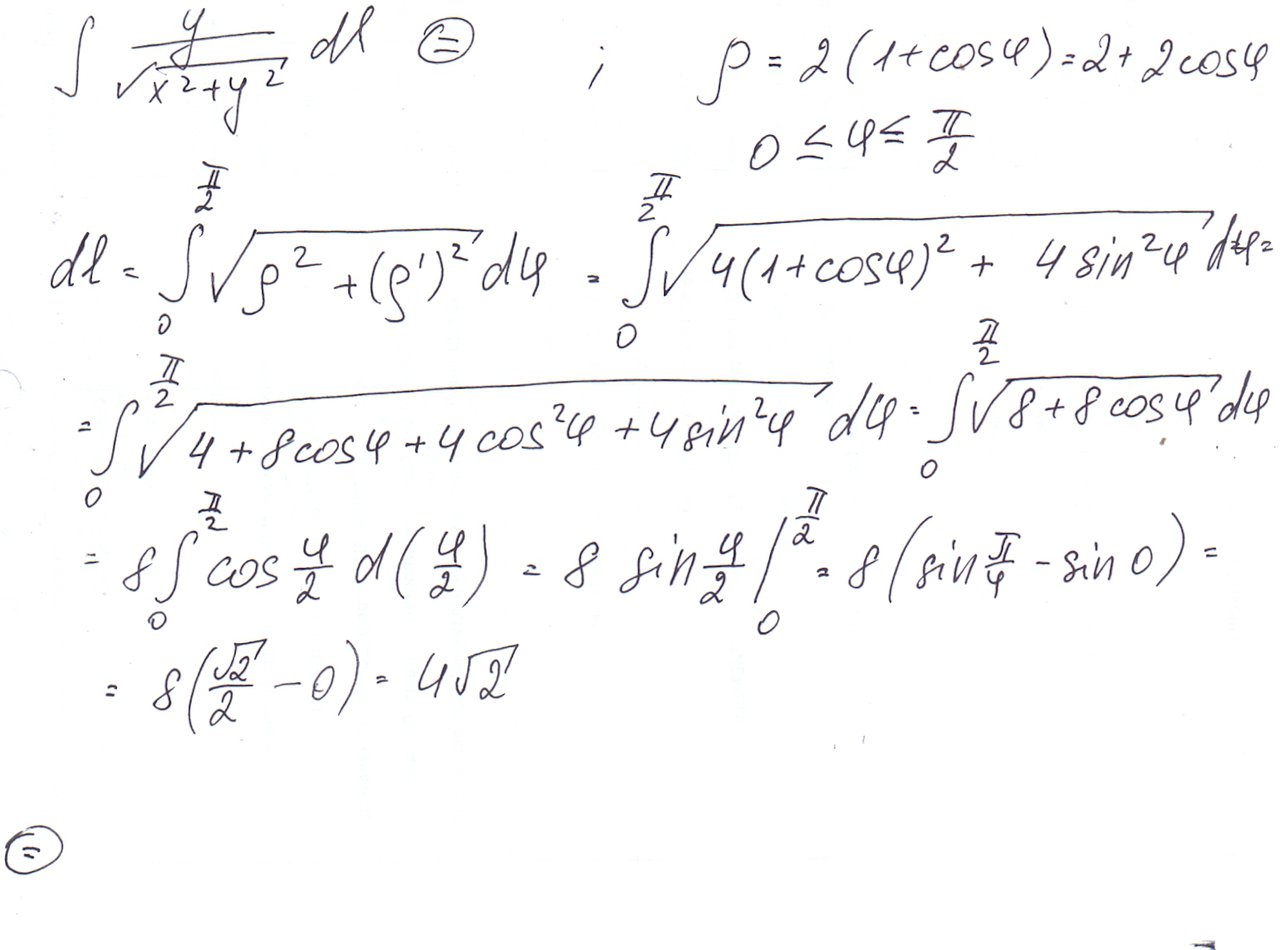 ∫ y/√(x²+y²) dl ⊜ ; ρ = 2(1+cosφ) = 2+2cosφ
0 ≤ φ ≤ π/2
dl = ∫₀^(π/2) √(ρ²+(ρ')²) dφ = ∫₀^(π/2) √(4(1+cosφ)² + 4sin²φ) dφ =
= ∫₀^(π/2) √(4+8cosφ+4cos²φ+4sin²φ) dφ = ∫₀^(π/2) √(8+8cosφ) dφ
= 8∫₀^(π/2) cos φ/2 d(φ/2) = 8 sin φ/2 |₀^(π/2) = 8(sin π/4 - sin 0) =
= 8(√2/2 - 0) = 4√2
⊜